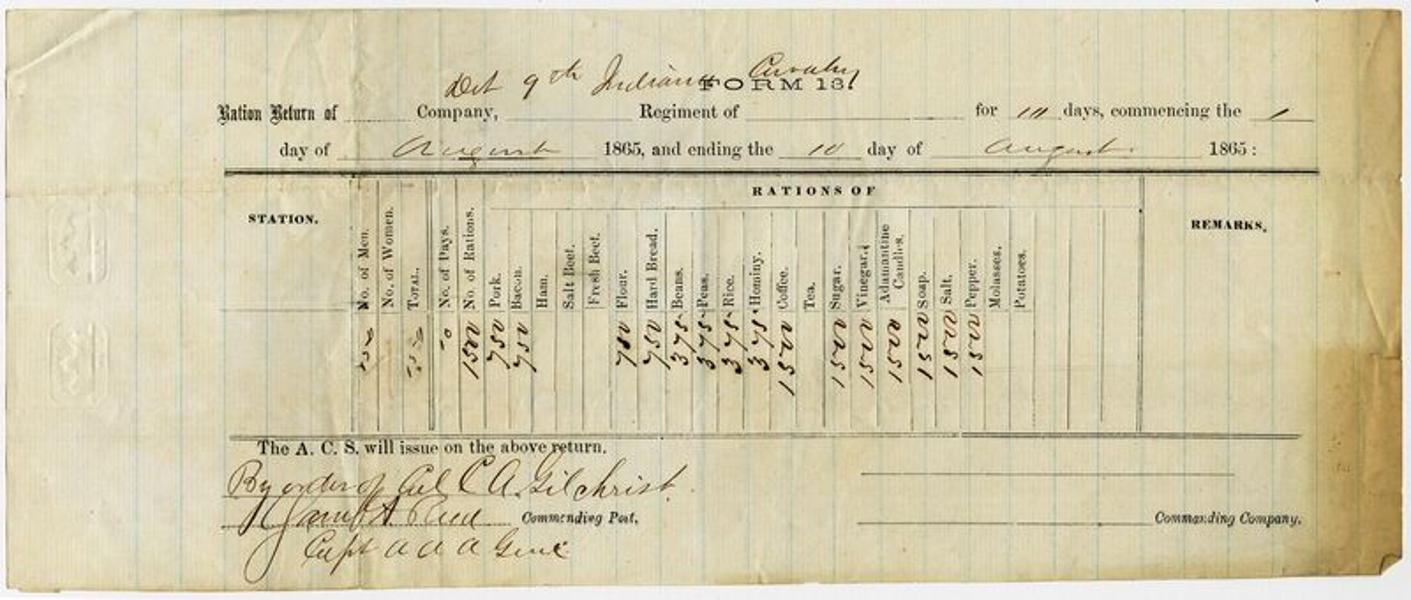 Det 9th Indiana Cavalry
FORM 13.
Ration Return of Company, Regiment of for 10 days, commencing the 1
day of August 1865, and ending the 10 day of August 1865:
RATIONS OF
STATION.
No. of Men.
No. of Women.
TOTAL.
No. of Days.
No. of Rations.
Pork.
Bacon.
Ham.
Salt Beef.
Fresh Beef.
Flour.
Hard Bread.
Beans.
Peas.
Rice.
Hominy.
Coffee.
Tea.
Sugar.
Vinegar.
Adamantine Candles.
Soap.
Salt.
Pepper.
Molasses.
Potatoes.
REMARKS.
150 150 10 1500 750 750 750 750 375 375 375 375 1500 1500 1500 1500 1500 1500 1500
The A. C. S. will issue on the above return.
By order of Col C A Gilchrist
Commending Post.
Commanding Company.
Capt A A A Genl